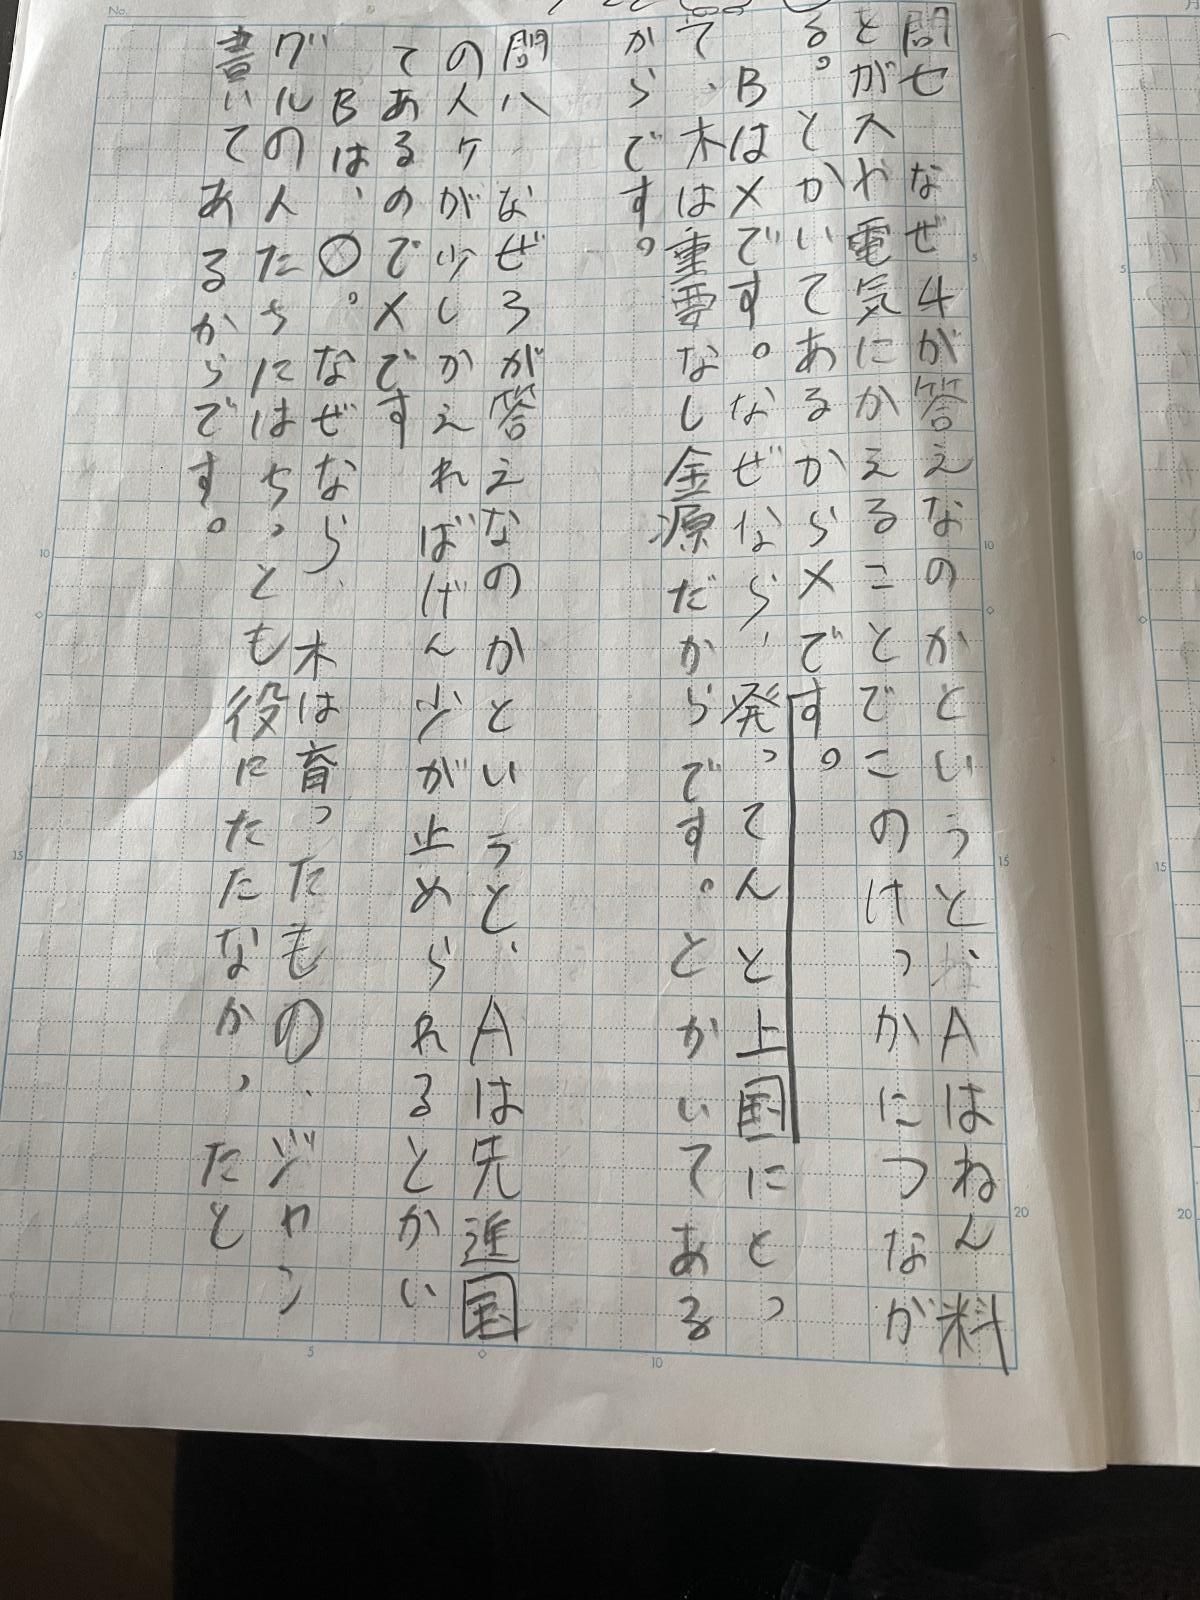 No.
問七 なぜ4が答えなのかというと、Aはねん料
とが大や電気にかえることでこのけっかにつなが
る。とかいてあるからメです。
Bはメです。なぜなら、発ってんと上国にとっ
て、木は重要なし金源だからです。とかいてある
からです。
問八 なぜろが答えなのかというと、Aは先進国
の人々が少しかえればげん少が止められるとかい
てあるのでメです
Bは、〇。なぜなら、木は育ったもの、ジャン
グルの人たちにはちっとも役にたたなかったと
書いてあるからです。